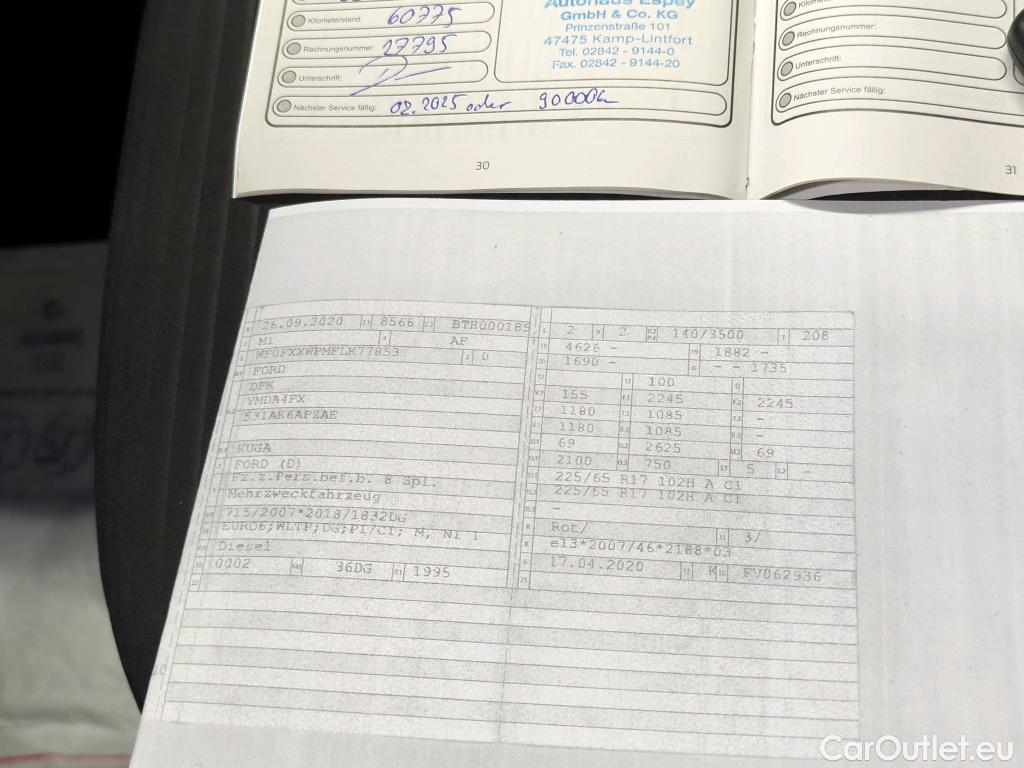 Kilometerstand: 60775
Rechnungsnummer: 27795
Unterschrift:
Nächster Service fällig: 02.2025 oder 90000k
Autohaus Espey
GmbH & Co. KG
Prinzenstraße 101
47475 Kamp-Lintfort
Tel. 02842 - 9144-0
Fax. 02842 - 9144-20
30
Rechnungsnummer:
Unterschrift:
Nächster Service fällig:
31
26.09.2020 8566 BTH000185
M1 AF
WF0FXXWPMFLK77853 0
FORD
DFK
YMDA4FX
531AK6APZAE
KUGA
FORD (D)
Fz.z.Pers.bef.b. 8 Spl.
Mehrzweckfahrzeug
715/2007*2018/1832DG
EURO6;WLTP;DG;PI/CI; M, N1 I
Diesel
0002 36DG 1995
2 2 140/3500 208
4626 - 1882 -
1690 - - - 1735
100
155 2245 2245
1180 1085 -
1180 1085 -
69 2625 69
2100 750 5 -
225/65 R17 102H A C1
225/65 R17 102H A C1
-
Rot/ 3/
e13*2007/46*2188*03
17.04.2020 K FV062936
CarOutlet.eu